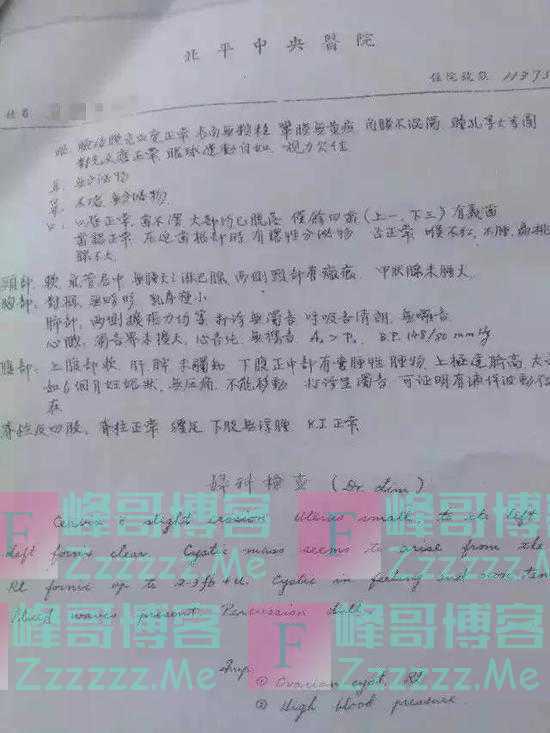 北平中央醫院
住院號數 11375
姓名
眼 瞼結膜充血度正常 表面無顆粒 鞏膜無黃疸 角膜不混濁 瞳孔等大等圓
對光反應正常 眼球運動自如 視力欠佳
耳 無分泌物
鼻 不堵 無分泌物
口 口唇正常 齒不潔 大部份已脫落 僅餘四齒(上一、下三)有義齒
齒齦正常 在近齒根部時有膿性分泌物 舌正常 喉不紅 不腫 扁桃
腺不大
頸部. 軟 氣管居中 無腫大之淋巴腺 兩側 部有瘢痕 甲狀腺未腫大
胸部. 對稱 無畸形 乳房極小
肺部. 兩側擴張力均等 打診無濁音 呼吸音清朗 無囉音
心臟. 濁音界未擴大 心音純 無襍音 A₂ > P₂ B.P. 148/80 mmHg
腹部. 上腹部軟 肝脾未觸知 下腹正中部有囊腫性腫物 上極達臍高 大
如6個月妊娠狀 無压痛 不能移動 打診呈濁音 可証明有液体波動存
在
脊柱及四肢. 脊柱正常 纏足 下肢無浮腫 K.J. 正常
婦科檢查 (Dr. Lim)
Cervix c̄ slight erosion. Uterus small, to the left
Left fornix clear. Cystic mass seems to arise from the
Rt fornix up to 2-3 fb + U. Cystic in feeling and non-ten
Fluid waves present. Percussion dull.
Imp.
① Ovarian cyst, Rt
② High blood pressure.
F 峰哥博客
Zzzzzz.Me
F 峰哥博客
Zzzzzz.Me
F 峰哥博客
Zzzzzz.Me
F 峰哥博客
Zzzzzz.Me